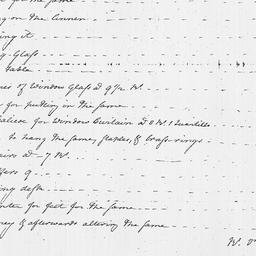 for the same
g on the Linnen
ing it
g Glass
table
nes of Window Glass a 9½ W.
for putting in the same
Calico for Window Curtain a 8 W. 1 Quartillo
to hang the same, staples, & brass rings
airs a 7 W.
ffers 9
ing desk
nter for feet for the same
ney & afterwards altering the same
W. D